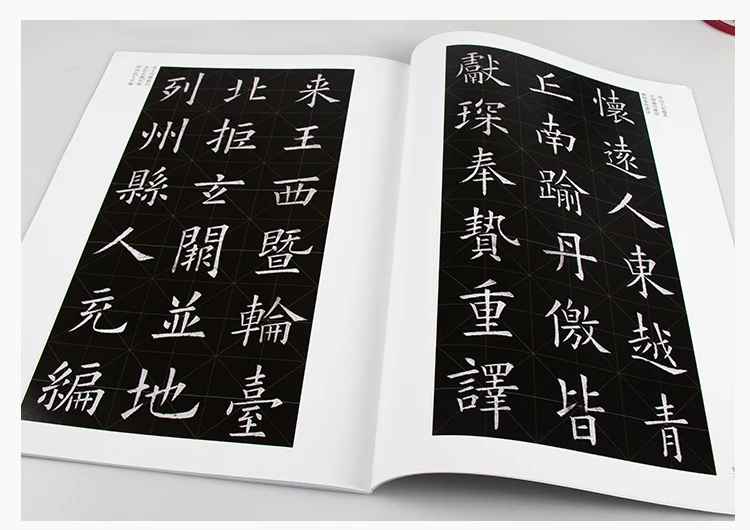 懷遠人東越青
丘南踰丹儌皆
獻琛奉贄重譯
来王西暨輪臺
北拒玄闕並地
列州縣人充編